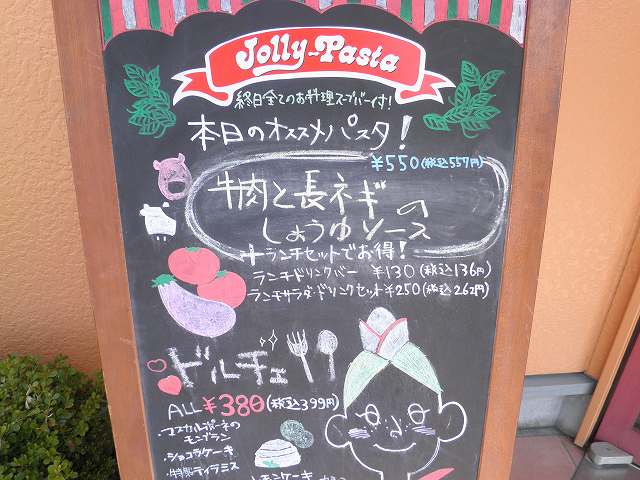 Jolly-Pasta
終日全てのお料理スープバー付!
本日のオススメパスタ!
¥550(税込557円)
牛肉と長ネギの
しょうゆソース
+ランチセットでお得!
ランチドリンクバー ¥130(税込136円)
ランチサラダ・ドリンクセット¥250(税込262円)
ドルチェ
ALL ¥380(税込399円)
・マスカルポーネの
モンブラン
・ショコラケーキ
・特製ティラミス
レモンケーキ